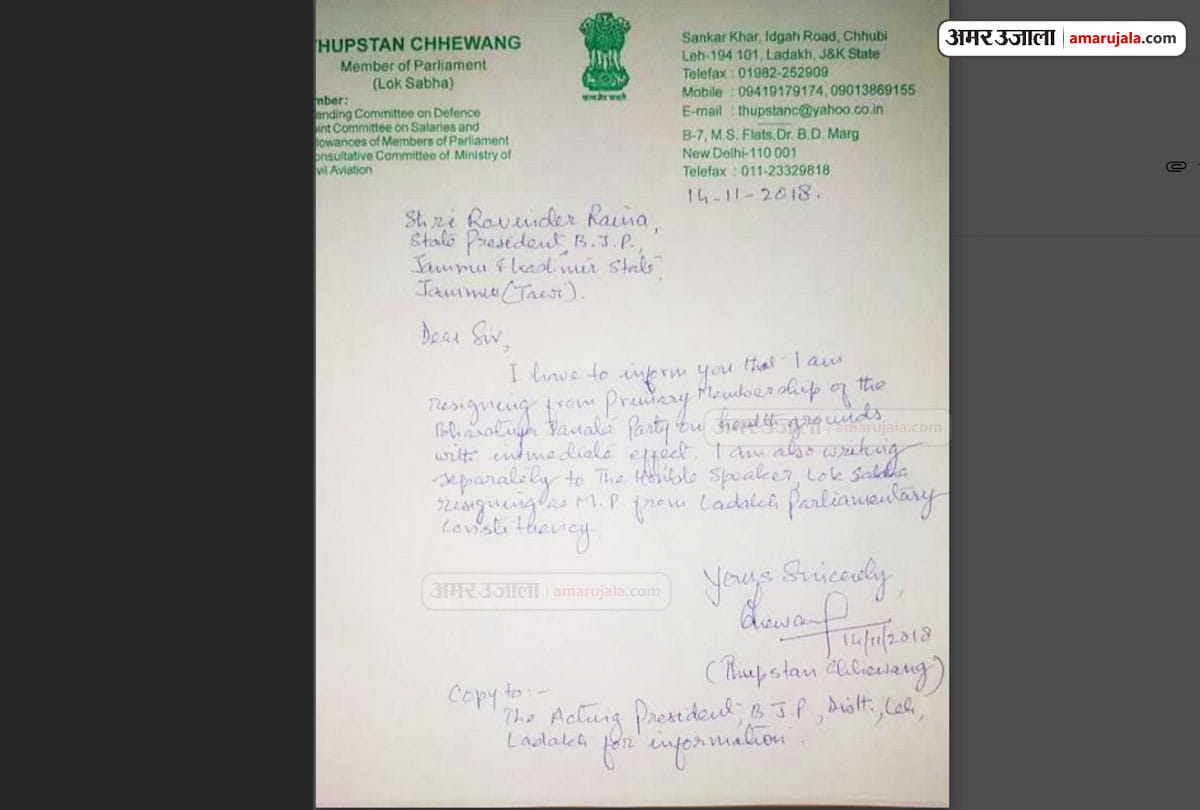 अमर उजाला amarujala.com
THUPSTAN CHHEWANG
Member of Parliament
(Lok Sabha)
mber:
anding Committee on Defence
int Committee on Salaries and
lowances of Members of Parliament
onsultative Committee of Ministry of
vil Aviation
सत्यमेव जयते
Sankar Khar, Idgah Road, Chhubi
Leh-194 101, Ladakh, J&K State
Telefax : 01982-252909
Mobile : 09419179174, 09013869155
E-mail : thupstanc@yahoo.co.in
B-7, M.S. Flats, Dr. B.D. Marg
New Delhi-110 001
Telefax : 011-23329818
14-11-2018.
Shri Ravinder Raina,
State President, B.J.P.,
Jammu & Kashmir State,
Jammu (Tawi).
Dear Sir,
I have to inform you that I am
resigning from Primary Membership of the
Bharatiya Janata Party on health grounds
with immediate effect. I am also writing
separately to The Hon'ble Speaker, Lok Sabha
resigning as M.P. from Ladakh Parliamentary
Constituency.
अमर उजाला amarujala.com
अमर उजाला amarujala.com
Yours Sincerely,
Chewang
14/11/2018
(Thupstan Chhewang)
Copy to:-
The Acting President, B.J.P, Distt., Leh,
Ladakh for information.